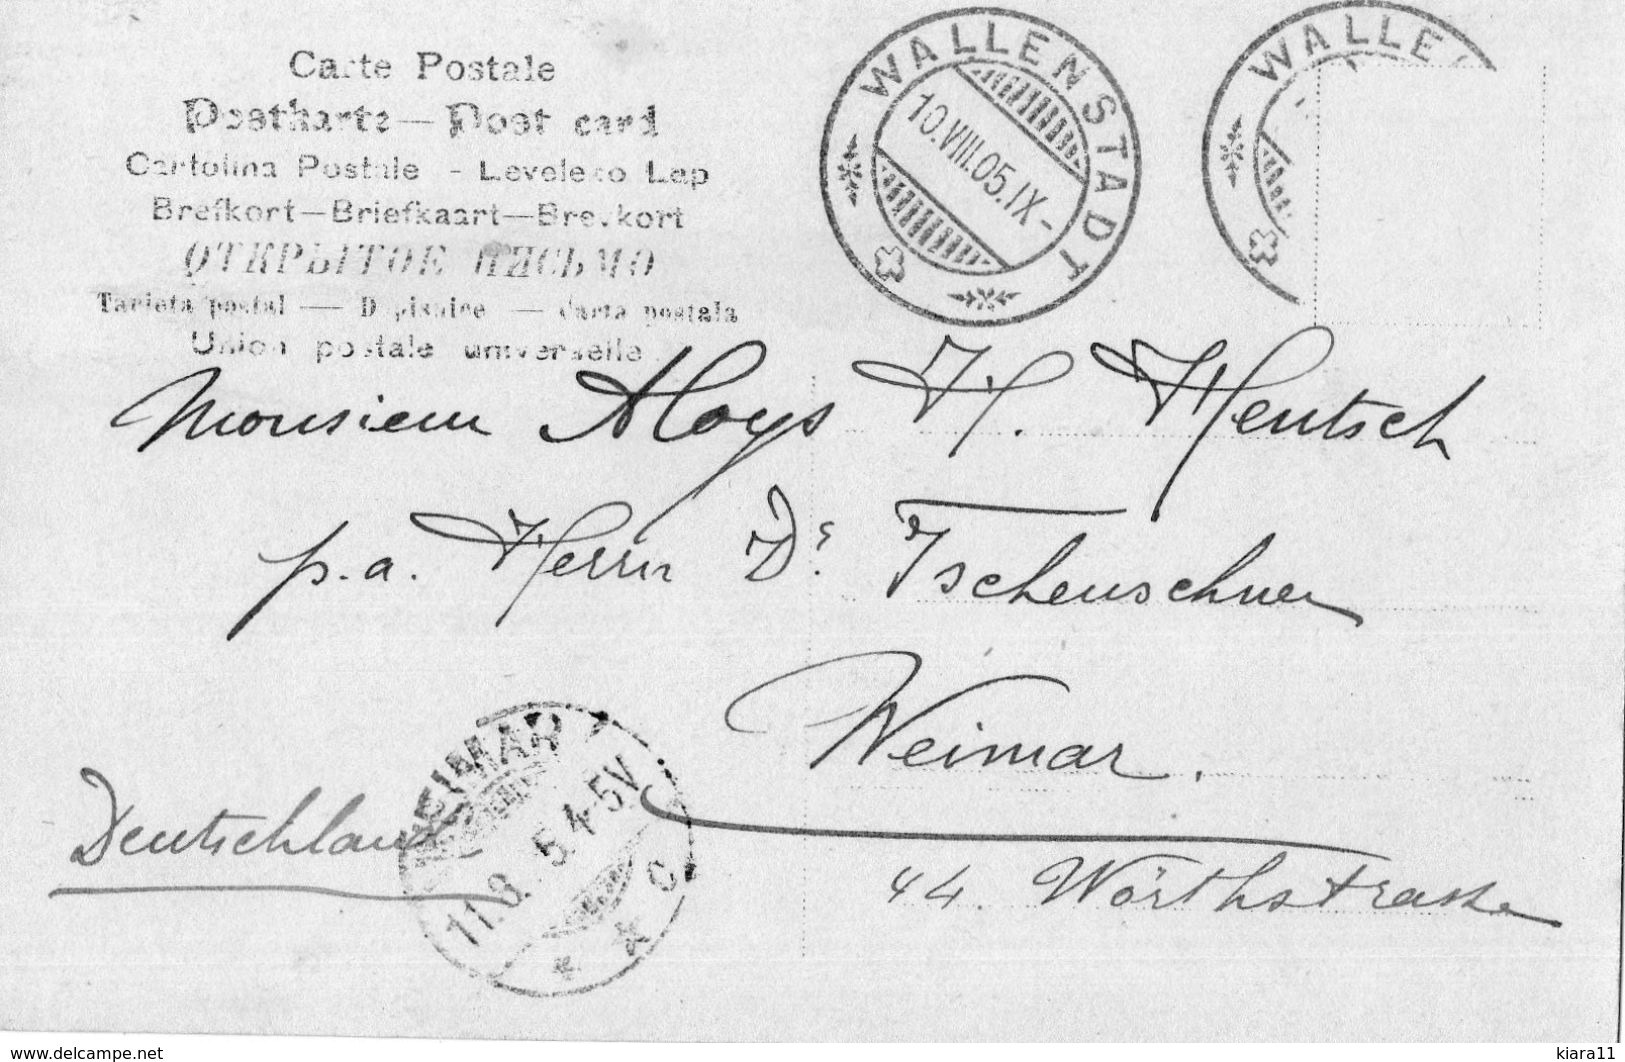 Carte Postale
Postkarte — Post card
Cartolina Postale - Levelezo Lap
Brefkort—Briefkaart—Brevkort
ОТКРЫТОЕ ПИСЬМО
Tarjeta postal — Dopisnice — Carta postala
Union postale universelle
WALLENSTADT
10.VIII.05.IX-
WALLE
Monsieur Aloys H. Hentsch
p.a. Herrn Dr. Tschenschner
Weimar.
44. Wörthstrasse
Deutschland
WEIMAR
11.8. 5.4-5V.
* * C
www.delcampe.net
kiara11